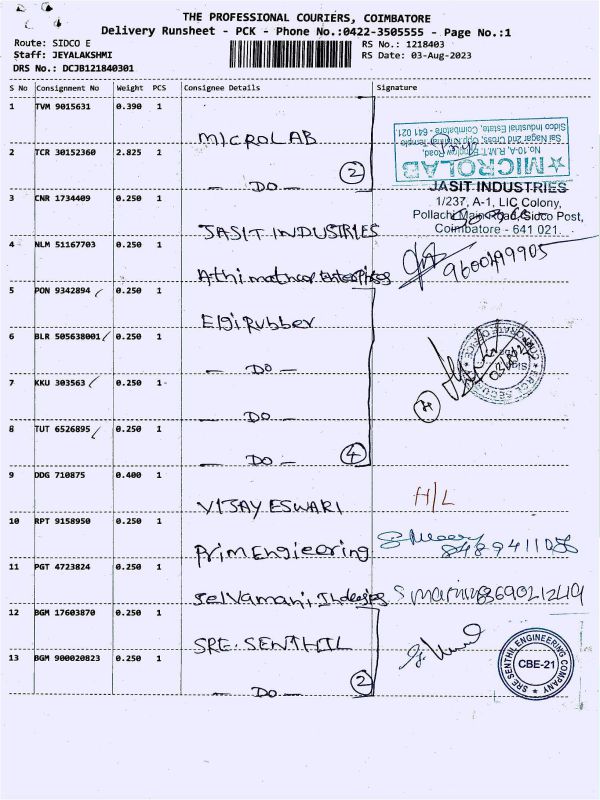 THE PROFESSIONAL COURIERS, COIMBATORE
Delivery Runsheet - PCK - Phone No.:0422-3505555 - Page No.:1
Route: SIDCO E
RS No.: 1218403
Staff: JEYALAKSHMI
RS Date: 03-Aug-2023
DRS No.: DCJB121840301
S No Consignment No Weight PCS Consignee Details Signature
1 TVM 9015631 0.390 1 MICROLAB
2 TCR 30152360 2.825 1 - DO - 2
No.10-A, R.M.T.
Sai Nagar 2nd Cross, Opp Krishna Temple
Sidco Industrial Estate, Coimbatore - 641 021.
MICROLAB
3 CNR 1734409 0.250 1 JASIT INDUSTRIES
JASIT INDUSTRIES
1/237, A-1, LIC Colony,
Pollachi Main Road, Sidco Post,
Coimbatore - 641 021.
4 NLM 51167703 0.250 1 Enterprises
9600499905
5 PON 9342894 0.250 1 Elgi Rubber
6 BLR 505638001 0.250 1 - DO -
7 KKU 303563 0.250 1 - DO -
8 TUT 6526895 0.250 1 - DO - 4
9 DDG 710875 0.400 1 VIJAY ESWARI H/L
10 RPT 9158950 0.250 1 Prim Engieering
11 PGT 4723824 0.250 1 Selvamani
12 BGM 17603870 0.250 1 SRE. SENTHIL
13 BGM 900020823 0.250 1 - DO - 2
SRE SENTHIL ENGINEERING COMPANY
CBE-21